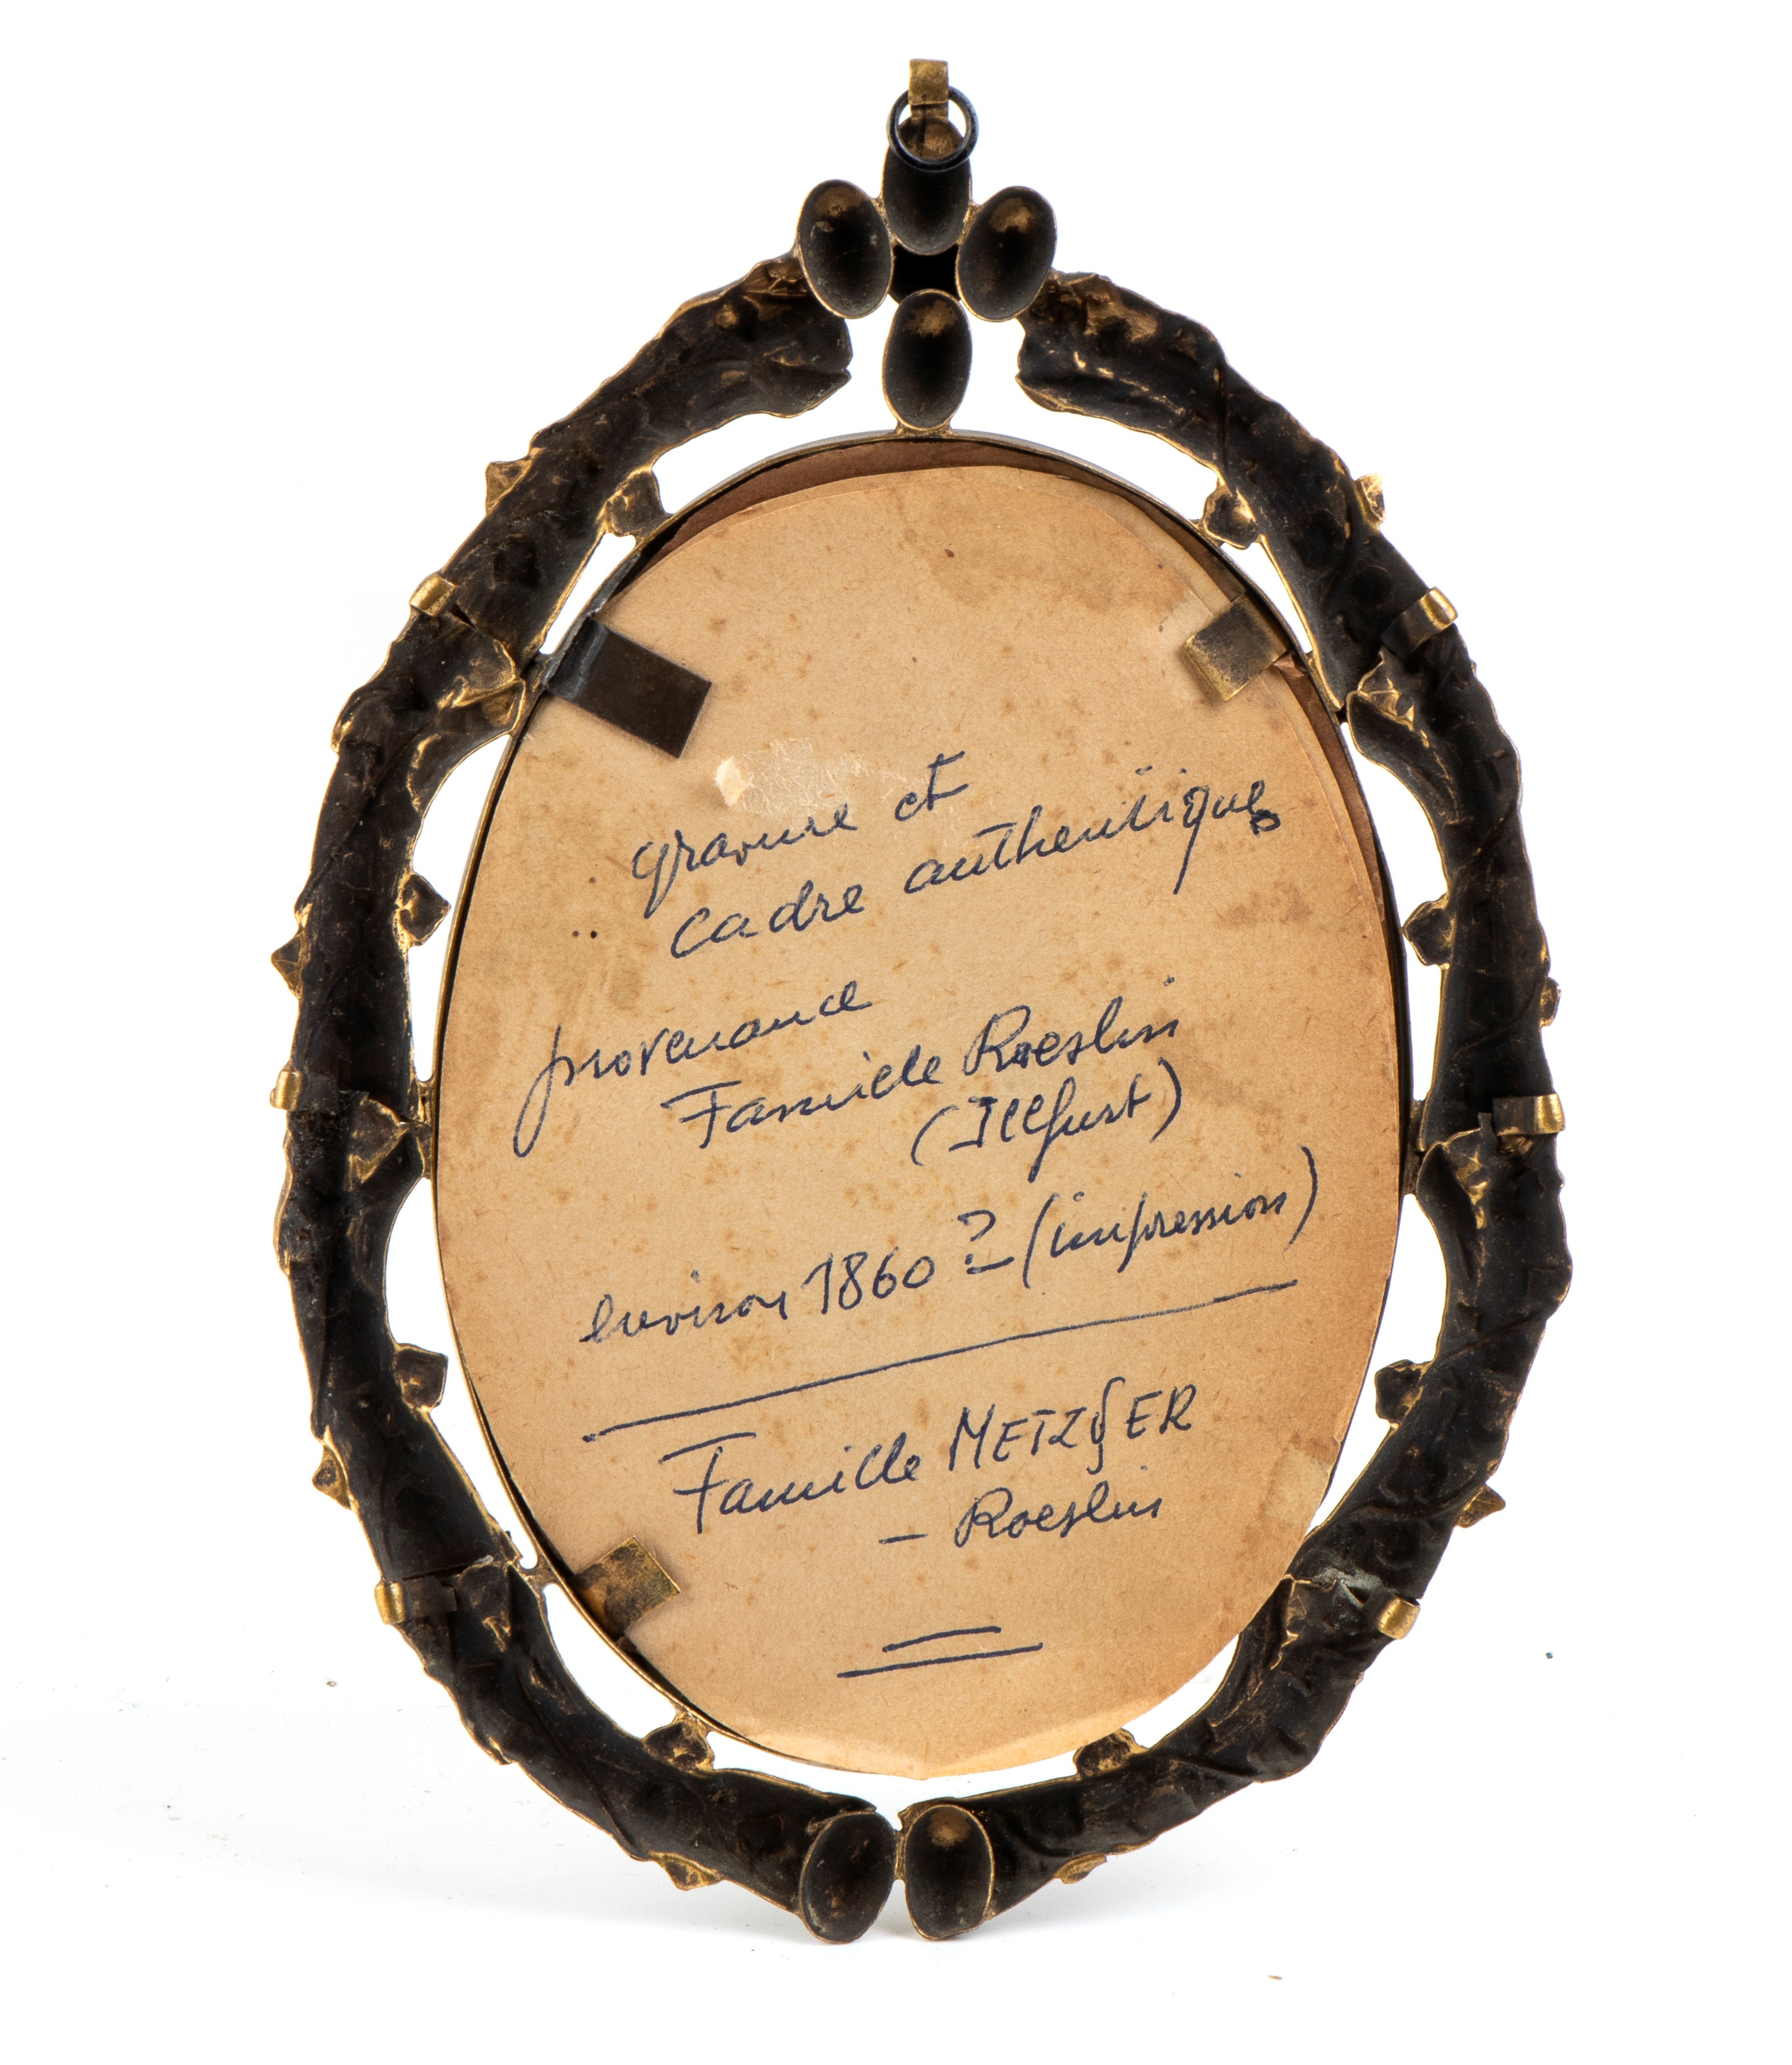 gravure et
cadre authentiques
provenance
Famille Roeslin
(Illfurt)
environ 1860 ? (impression)
Famille METZGER
– Roeslin